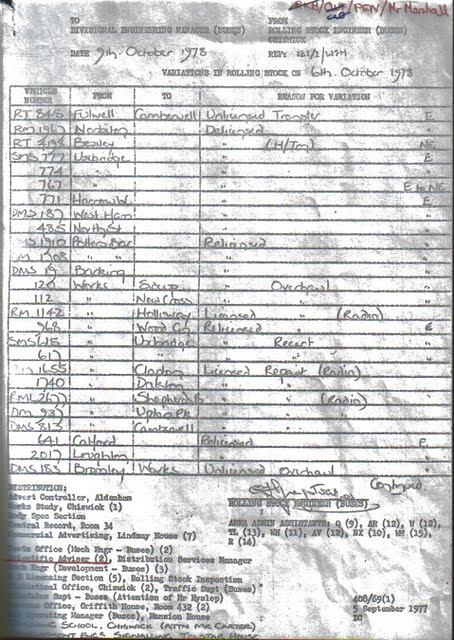 TO FROM
DIVISIONAL ENGINEERING MANAGER (BUSES) ROLLING STOCK ENGINEER (BUSES)
CHISWICK
/PEN/Mr Marshall
DATE 9th October 1978 REF: 121/1/WJH
VARIATIONS IN ROLLING STOCK ON 6th October 1978
VEHICLE NUMBER FROM TO REASON FOR VARIATION
RT 848 Fulwell Camberwell Unlicensed Transfer E
RM 1967 Norbiton " Delicensed "
Bexley " " (H/Tm) NE
SMS 777 Uxbridge " E
774 " " "
767 " " E to NE
771 Harrow Wld " E
DMS 187 West Ham " "
485 North St " "
1910 Potters Bar Relicensed "
1308 " " "
DMS 19 Barking " "
120 Works " Overhaul "
112 " New Cross " " "
RM 1142 " Holloway Licensed (Radio) "
968 " Wood Gn Relicensed " E
SMS 615 " Uxbridge " Recert "
617 " " " " "
1655 " Clapton Licensed Repaint (Radio) "
1740 " Dalston " " "
RML 2677 " Shepherds B " (Radio) "
DM 937 " Upton Pk " " "
DMS 813 " Camberwell " "
641 Catford Relicensed E
2017 Loughton " "
DMS 183 Bromley Works Unlicensed Overhaul "
Continued
DISTRIBUTION: ROLLING STOCK ENGINEER (BUSES)
Advert Controller, Aldenham
Works Study, Chiswick (1)
Body Spec Section
Central Record, Room 34
Commercial Advertising, Lindsay House (7)
AREA ADMIN ASSISTANTS: Q (9), AR (12), W (12),
TL (13), WH (11), AV (12), HX (10), WN (15),
R (14)
Costs Office (Mech Engr - Buses) (2)
Scientific Adviser (2), Distribution Services Manager
(Development - Buses) (3)
Licensing Section (5), Rolling Stock Inspection
Statistical Office (2), Chiswick (2), Traffic Supt (Buses)
Supt - Buses (Attention of Mr Hyslop)
Office, Griffith House, Room 432 (2)
Operating Manager (Buses), Mansion House
408/69(1)
5 September 1977
DO
SCHOOL, CHISWICK (ATTN MR CARTER)
ENGR SIGNALLING, TELSTAR HOUSE